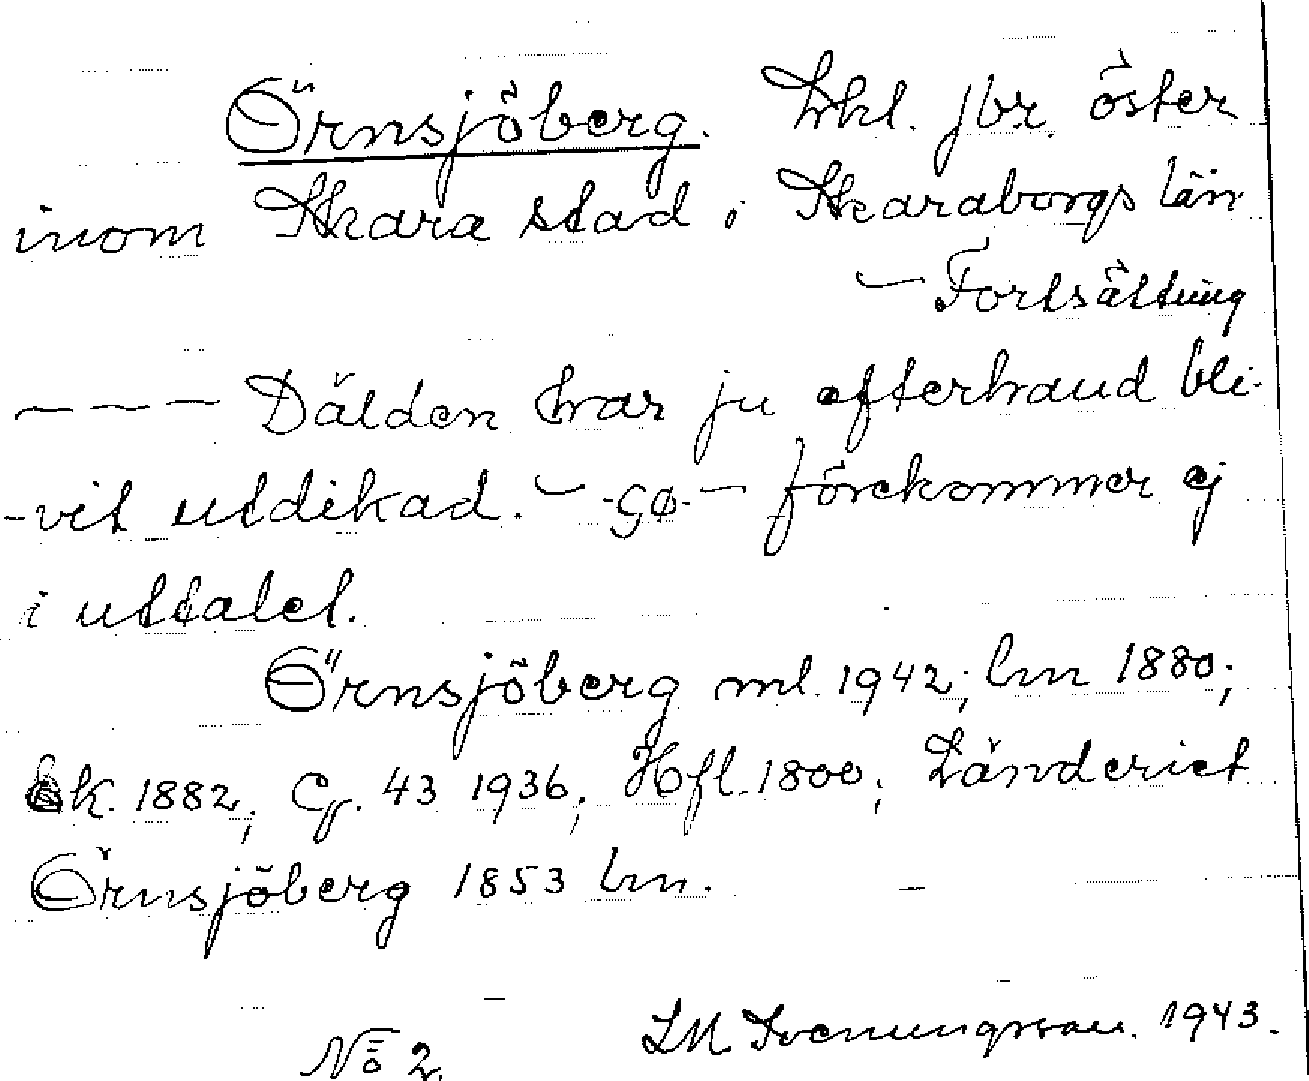 Örnsjöberg. Lkl. jbr. öster
inom Skara stad i Skaraborgs län
– Fortsättning
– – – Dälden har ju efterhand bli-
-vit utdikad. – -sö- – förekommer ej
i uttalet.
Örnsjöberg ml. 1942; lm 1880;
k. 1882; Cg. 43 1936; Hfl. 1800; Länderiet
Örnsjöberg 1853 lm.
LM. Svenungsson. 1943.
No 2.